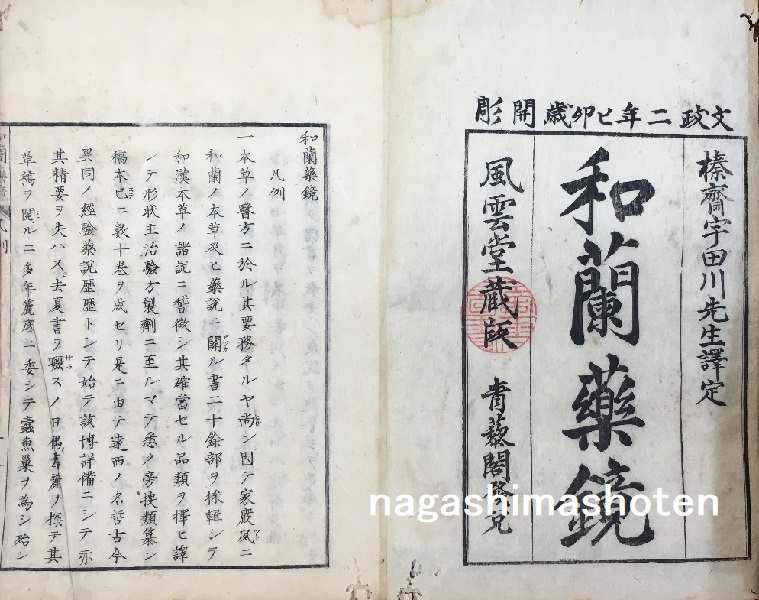 文政二年己卯歳開彫
榛齋宇田川先生譯定
和蘭藥鏡
風雲堂蔵版 青藜閣發兌
和蘭藥鏡
凡例
一本草ノ醫方ニ於ル其要務タルヤ尚シ因テ家嚴夙ニ
和蘭ノ本草及ヒ藥説ニ關ル書二十餘部ヲ採輯シテ
和漢本草ノ諸説ニ暫徴シ其確當セル品類ヲ擇ヒ譯
シテ形状主治驗方製劑ニ至ルマテ悉ク旁捜類纂シ
稿本已ニ数十巻ヲ成セリ是ニ由テ遠西ノ名哲古今
異同ノ經驗藥説歴歴トシテ始テ該博詳備ニシテ亦
其精要ヲ失ハス去夏書ヲ曝スノ日偶書簏ヲ探テ其
草稿ヲ閲ルニ多年簏底ニ委シテ蠹魚巣ヲ為シ殆ン
nagashimashoten